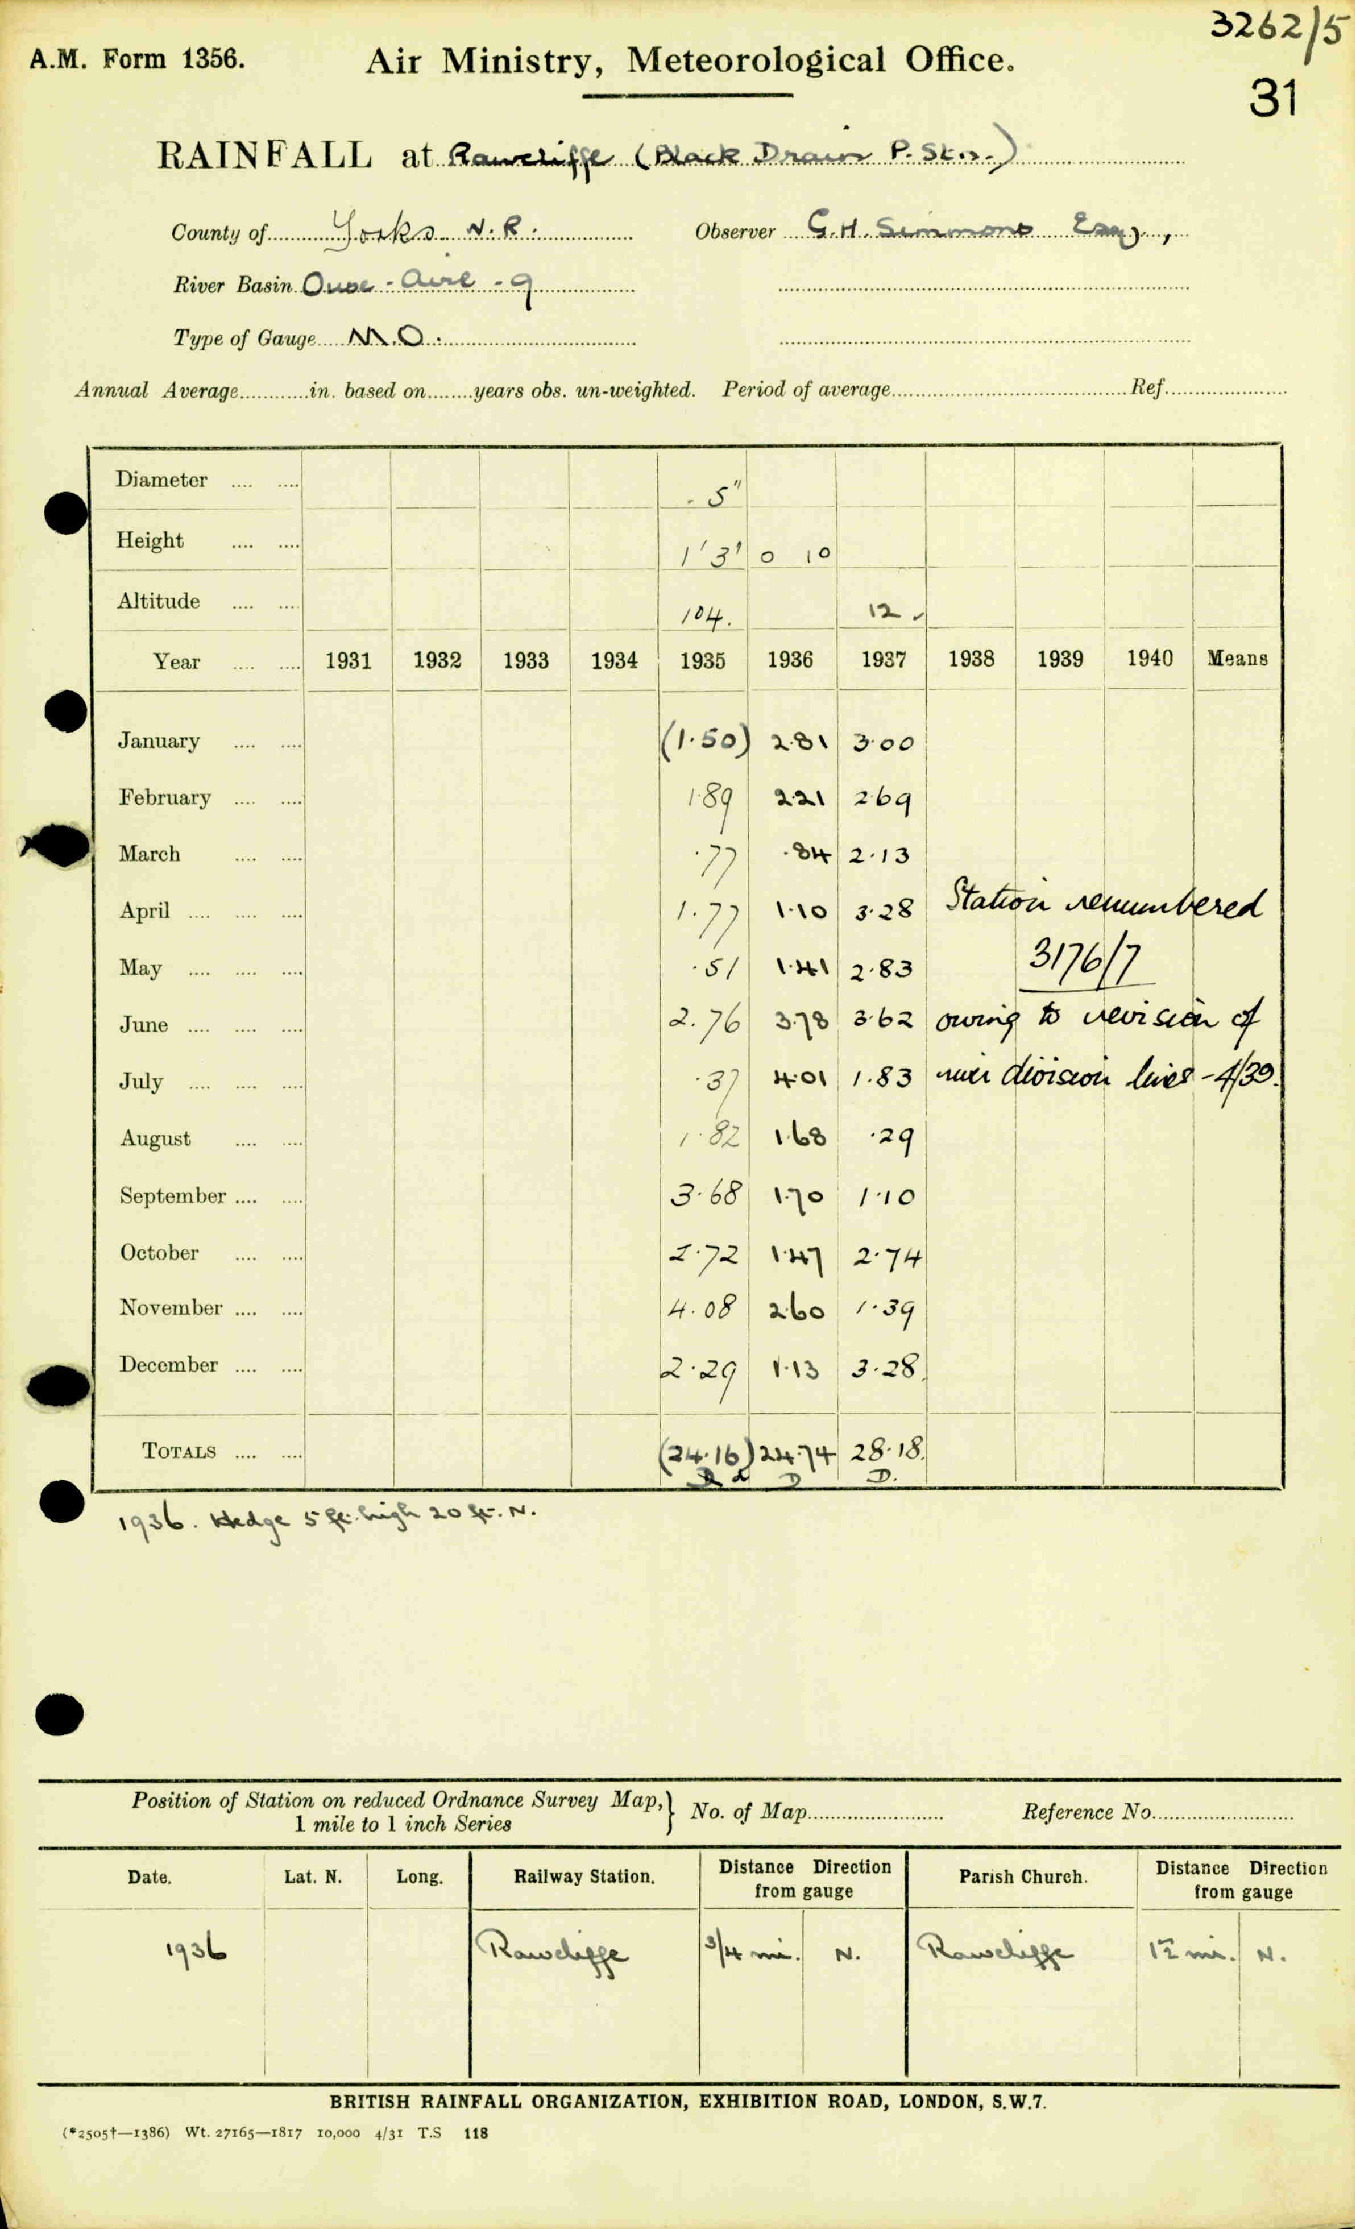 3262/5
A.M. Form 1356. Air Ministry, Meteorological Office.
31
RAINFALL at Rawcliffe (Black Drain P. Stn.)
County of Yorks N.R. Observer G.H. Simmons Esq.,
River Basin Ouse - Aire - 9
Type of Gauge M.O.
Annual Average in. based on years obs. un-weighted. Period of average Ref.
Diameter 5"
Height 1'3" 0 10
Altitude 104. 12
Year 1931 1932 1933 1934 1935 1936 1937 1938 1939 1940 Means
January (1.50) 2.81 3.00
February 1.89 2.21 2.69
March .77 .84 2.13
April 1.77 1.10 3.28 Station renumbered
May .51 1.41 2.83 3176/7
June 2.76 3.78 3.62 owing to revision of
July .37 4.01 1.83 river division lines - 4/39.
August 1.82 1.68 .29
September 3.68 1.70 1.10
October 2.72 1.47 2.74
November 4.08 2.60 1.39
December 2.29 1.13 3.28
TOTALS (24.16) 24.74 28.18
D D.
1936. Hedge 5 ft. high 20 ft. N.
Position of Station on reduced Ordnance Survey Map,} No. of Map Reference No.
1 mile to 1 inch Series
Date. Lat. N. Long. Railway Station. Distance Direction from gauge Parish Church. Distance Direction from gauge
1936 Rawcliffe 3/4 mi. N. Rawcliffe 1½ mi. N.
BRITISH RAINFALL ORGANIZATION, EXHIBITION ROAD, LONDON, S.W.7.
(*2505†—1386) Wt. 27165—1817 10,000 4/31 T.S 118